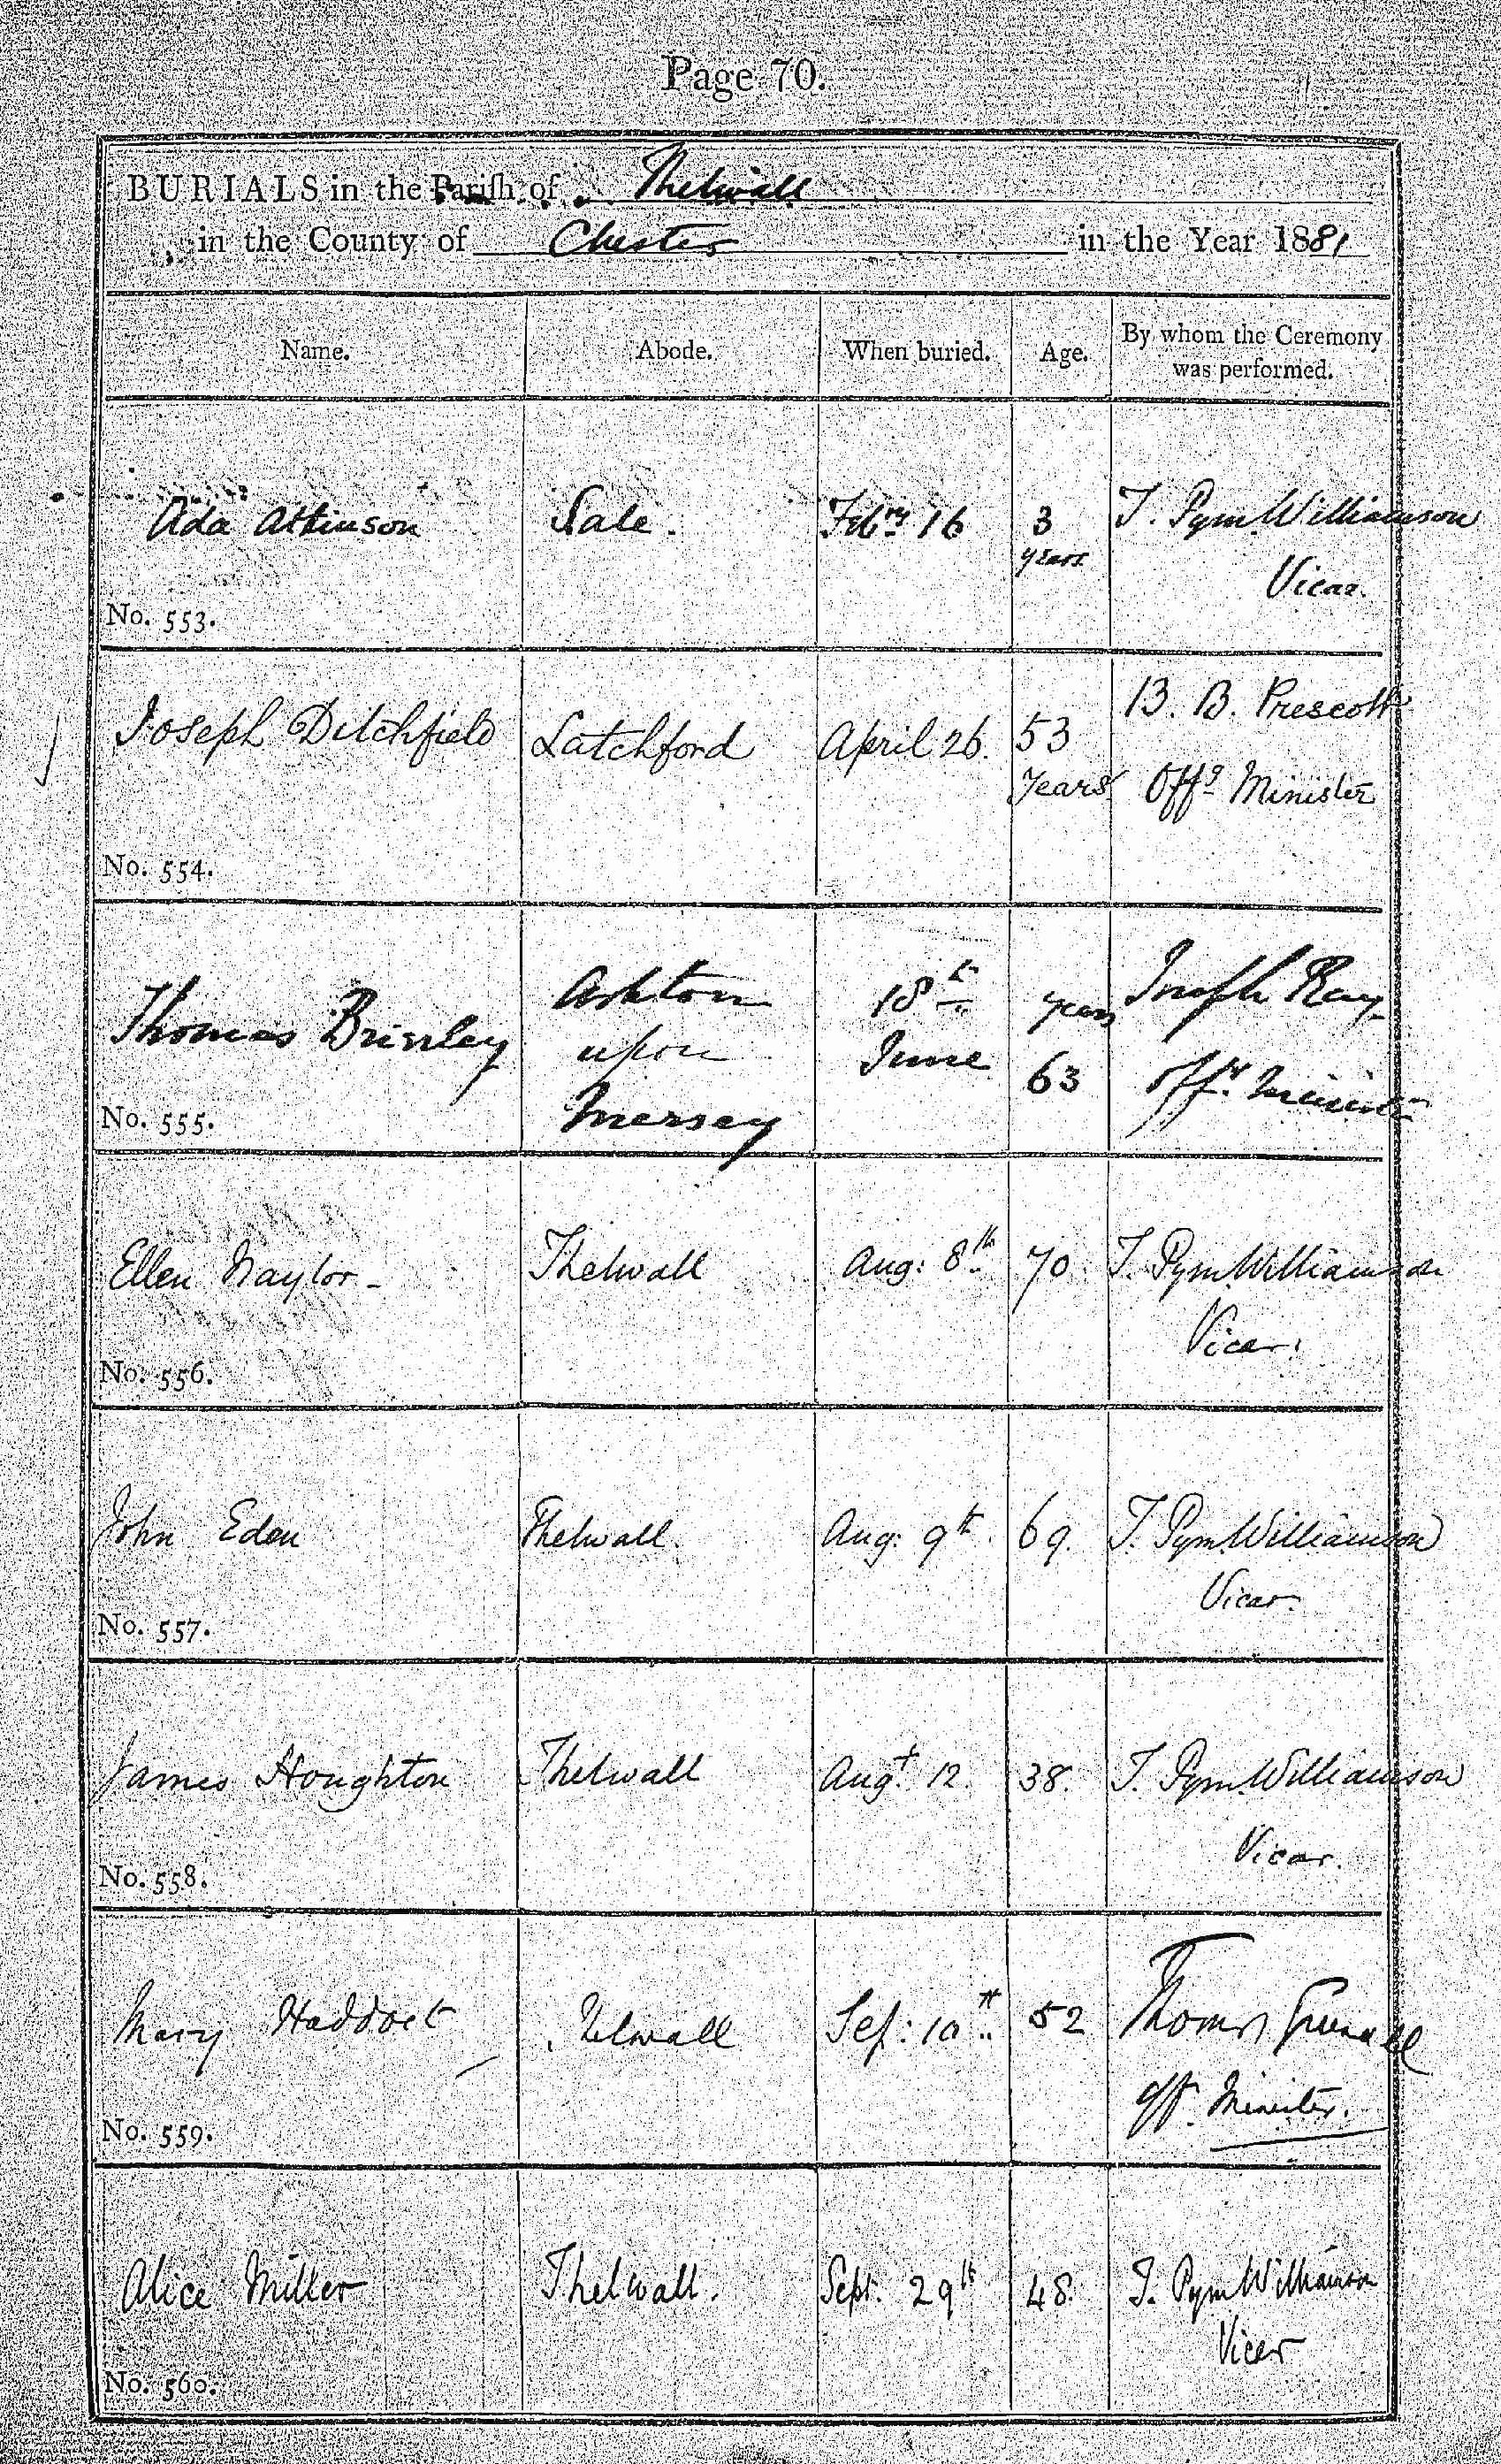 Page 70.
BURIALS in the Parish of Thelwall
in the County of Chester in the Year 1881
Name. Abode. When buried. Age. By whom the Ceremony was performed.
Ada Atkinson Sale. Feb.ry 16 3 years T. Pym Williamson Vicar.
No. 553.
Joseph Ditchfield Latchford April 26. 53 years B. B. Prescott Offg Minister
No. 554.
Thomas Brinley Ashton upon Mersey 18th June years 63 Joseph Ray Minister
No. 555.
Ellen Naylor - Thelwall Aug: 8th 70 T. Pym Williamson Vicar.
No. 556.
John Eden Thelwall. Aug: 9th 69. T. Pym Williamson Vicar.
No. 557.
James Houghton Thelwall Augt. 12. 38. T. Pym Williamson Vicar.
No. 558.
Mary Thelwall Sep: 10th 52 Thomas Off. Minister.
No. 559.
Alice Miller Thelwall. Sept. 29th 48. T. Pym Williamson Vicar
No. 560.